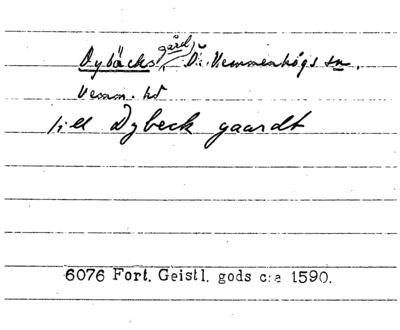 Dybäcks gård, Ö. Vemmenhögs sn.
Vemm. hd
till Dybeck gaardt
6076 Fort. Geistl. gods c:a 1590.